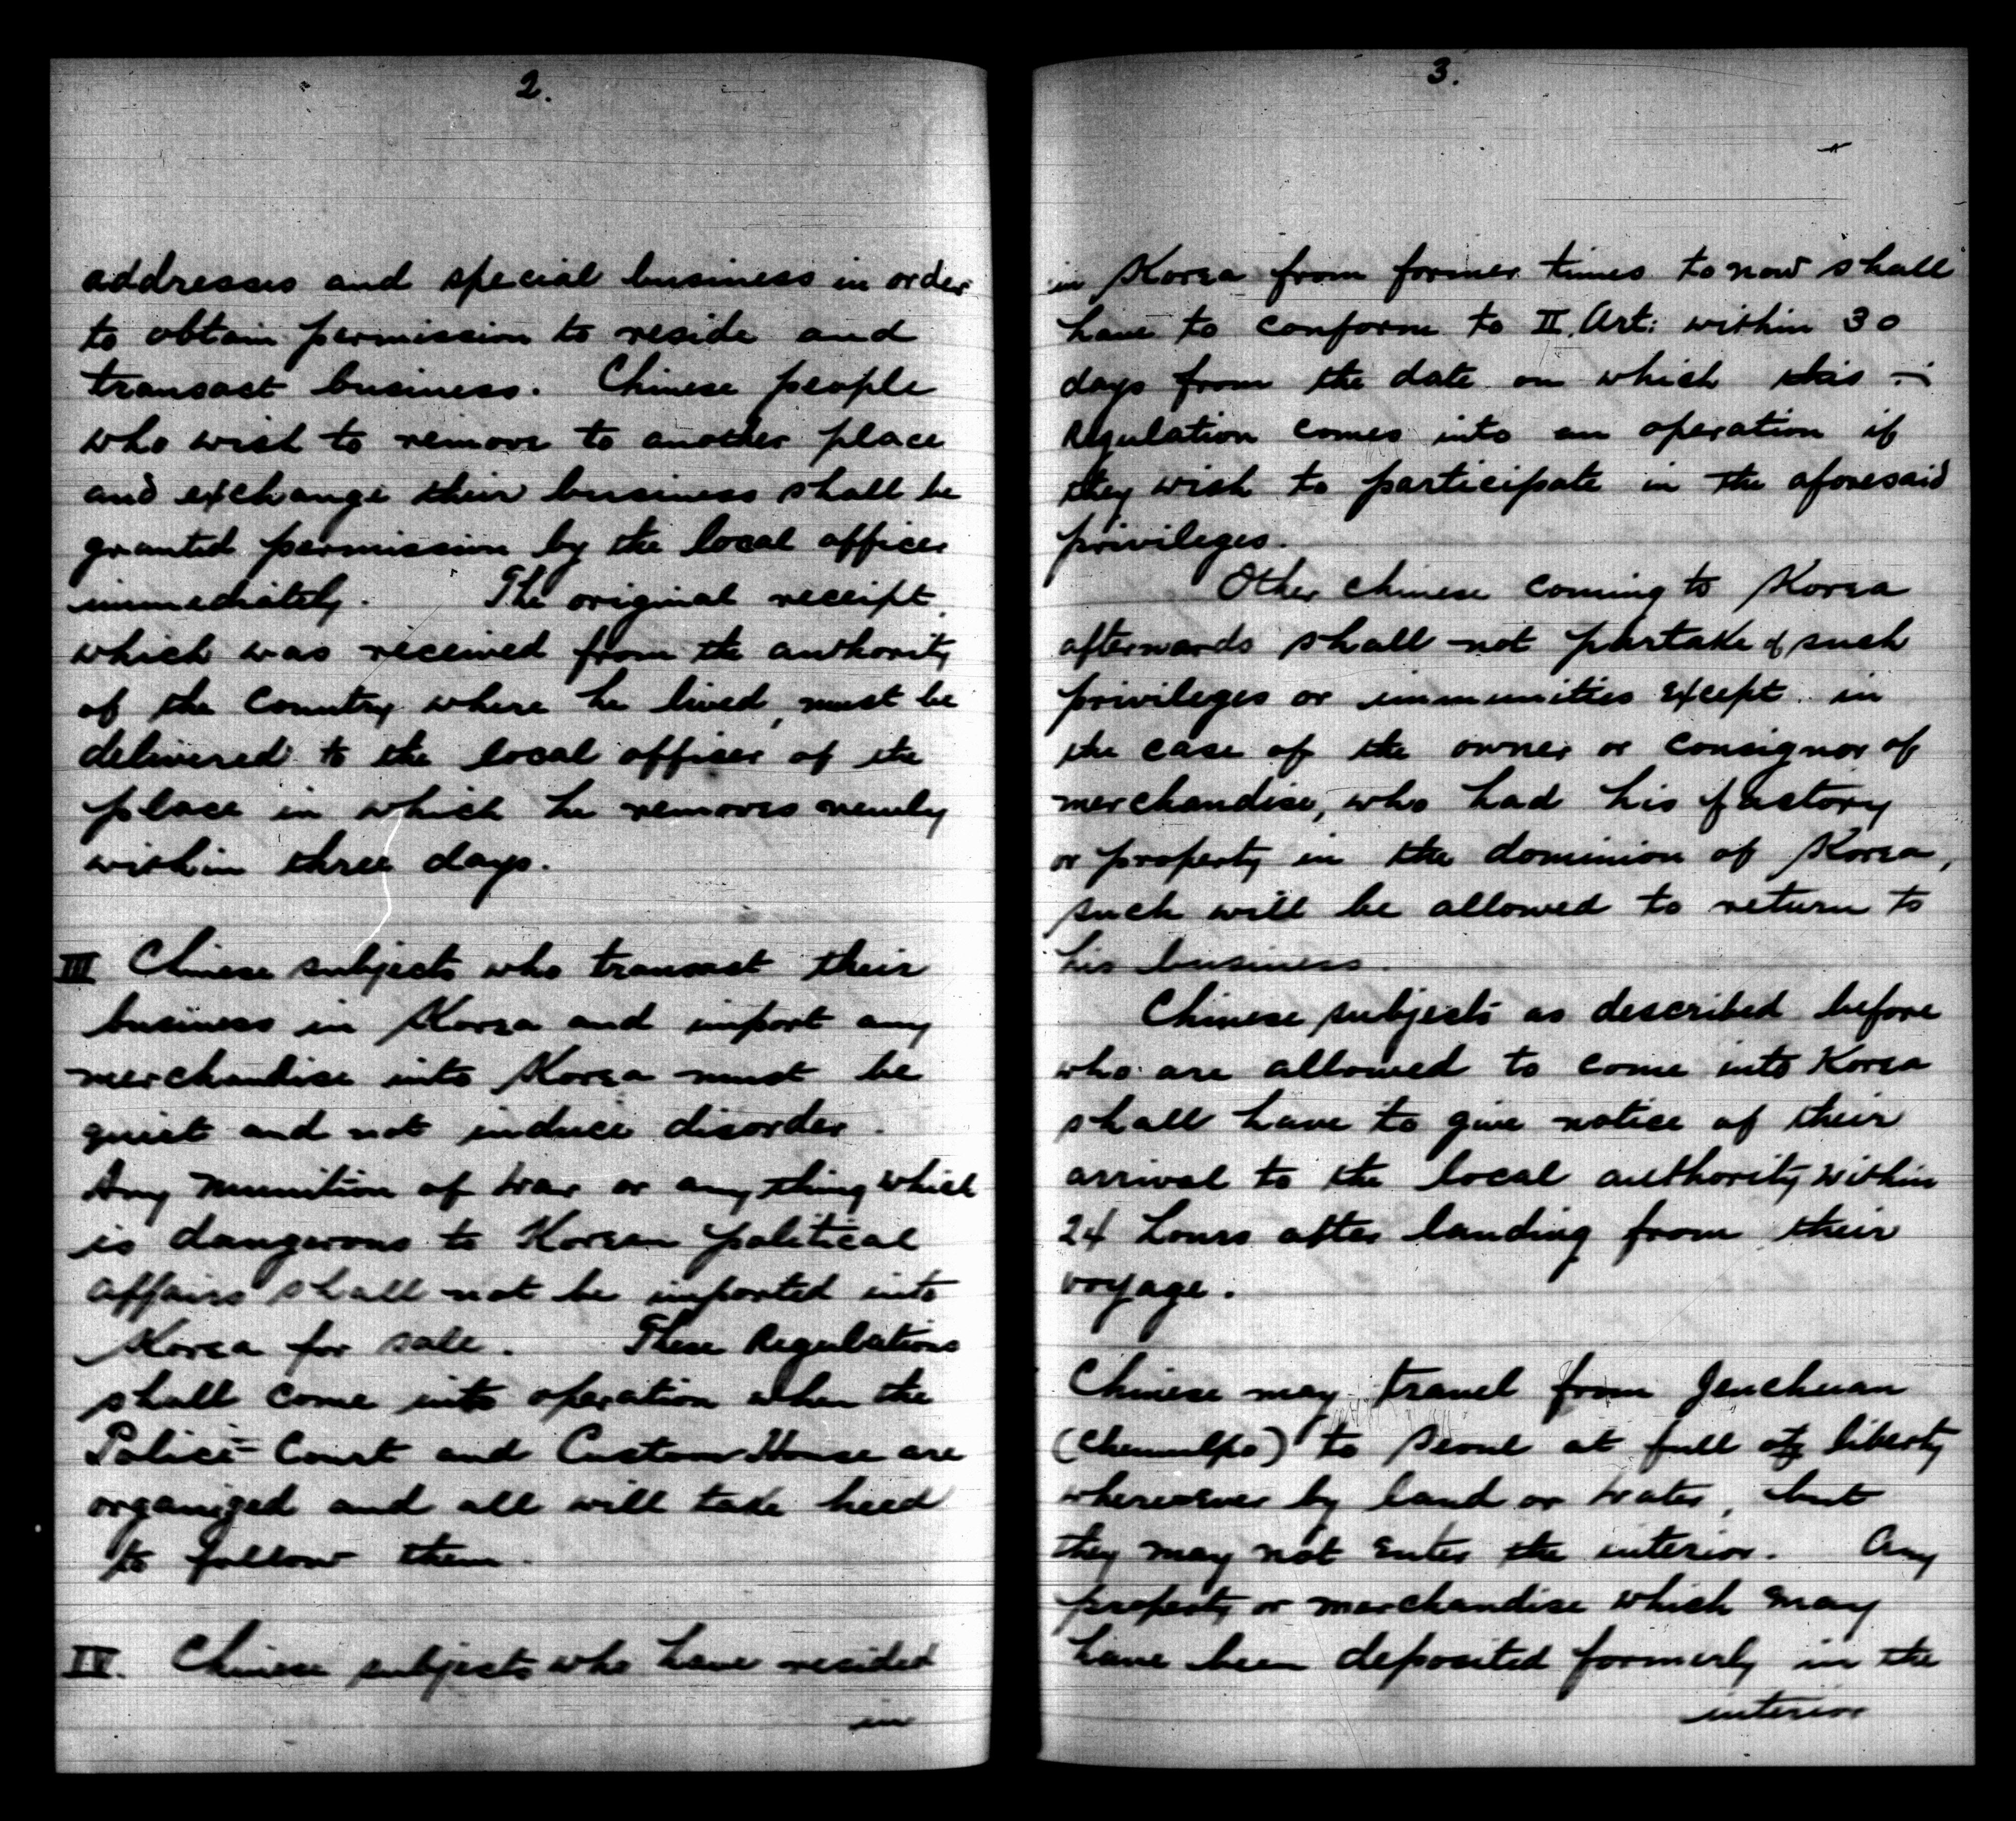 2.
addresses and special business in order
to obtain permission to reside and
transact business. Chinese people
who wish to remove to another place
and exchange their business shall be
granted permission by the local officer
immediately. The original receipt
which was received from the authority
of the Country where he lived, must be
delivered to the local officer of the
place in which he removes newly
within three days.
III Chinese subjects who transact their
business in Korea and import any
merchandise into Korea must be
quiet and not induce disorder.
Any munition of war or anything which
is dangerous to Korean political
affairs shall not be imported into
Korea for sale. These Regulations
shall come into operation when the
Police-Court and Custom House are
organized and all will take heed
to follow them.
IV. Chinese subjects who have resided
in
3.
in Korea from former times to now shall
have to conform to II. Art: within 30
days from the date on which this
Regulation comes into an operation if
they wish to participate in the aforesaid
privileges.
Other chinese coming to Korea
afterwards shall not partake of such
privileges or immunities except in
the case of the owner or consignor of
merchandise, who had his factory
or property in the dominion of Korea,
such will be allowed to return to
his business.
Chinese subjects as described before
who are allowed to come into Korea
shall have to give notice of their
arrival to the local authority within
24 hours after landing from their
voyage.
Chinese may travel from Jenchuan
(Chemulpo) to Seoul at full liberty
wheresoever by land or water, but
they may not enter the interior. Any
property or merchandise which may
have been deposited formerly in the
interior